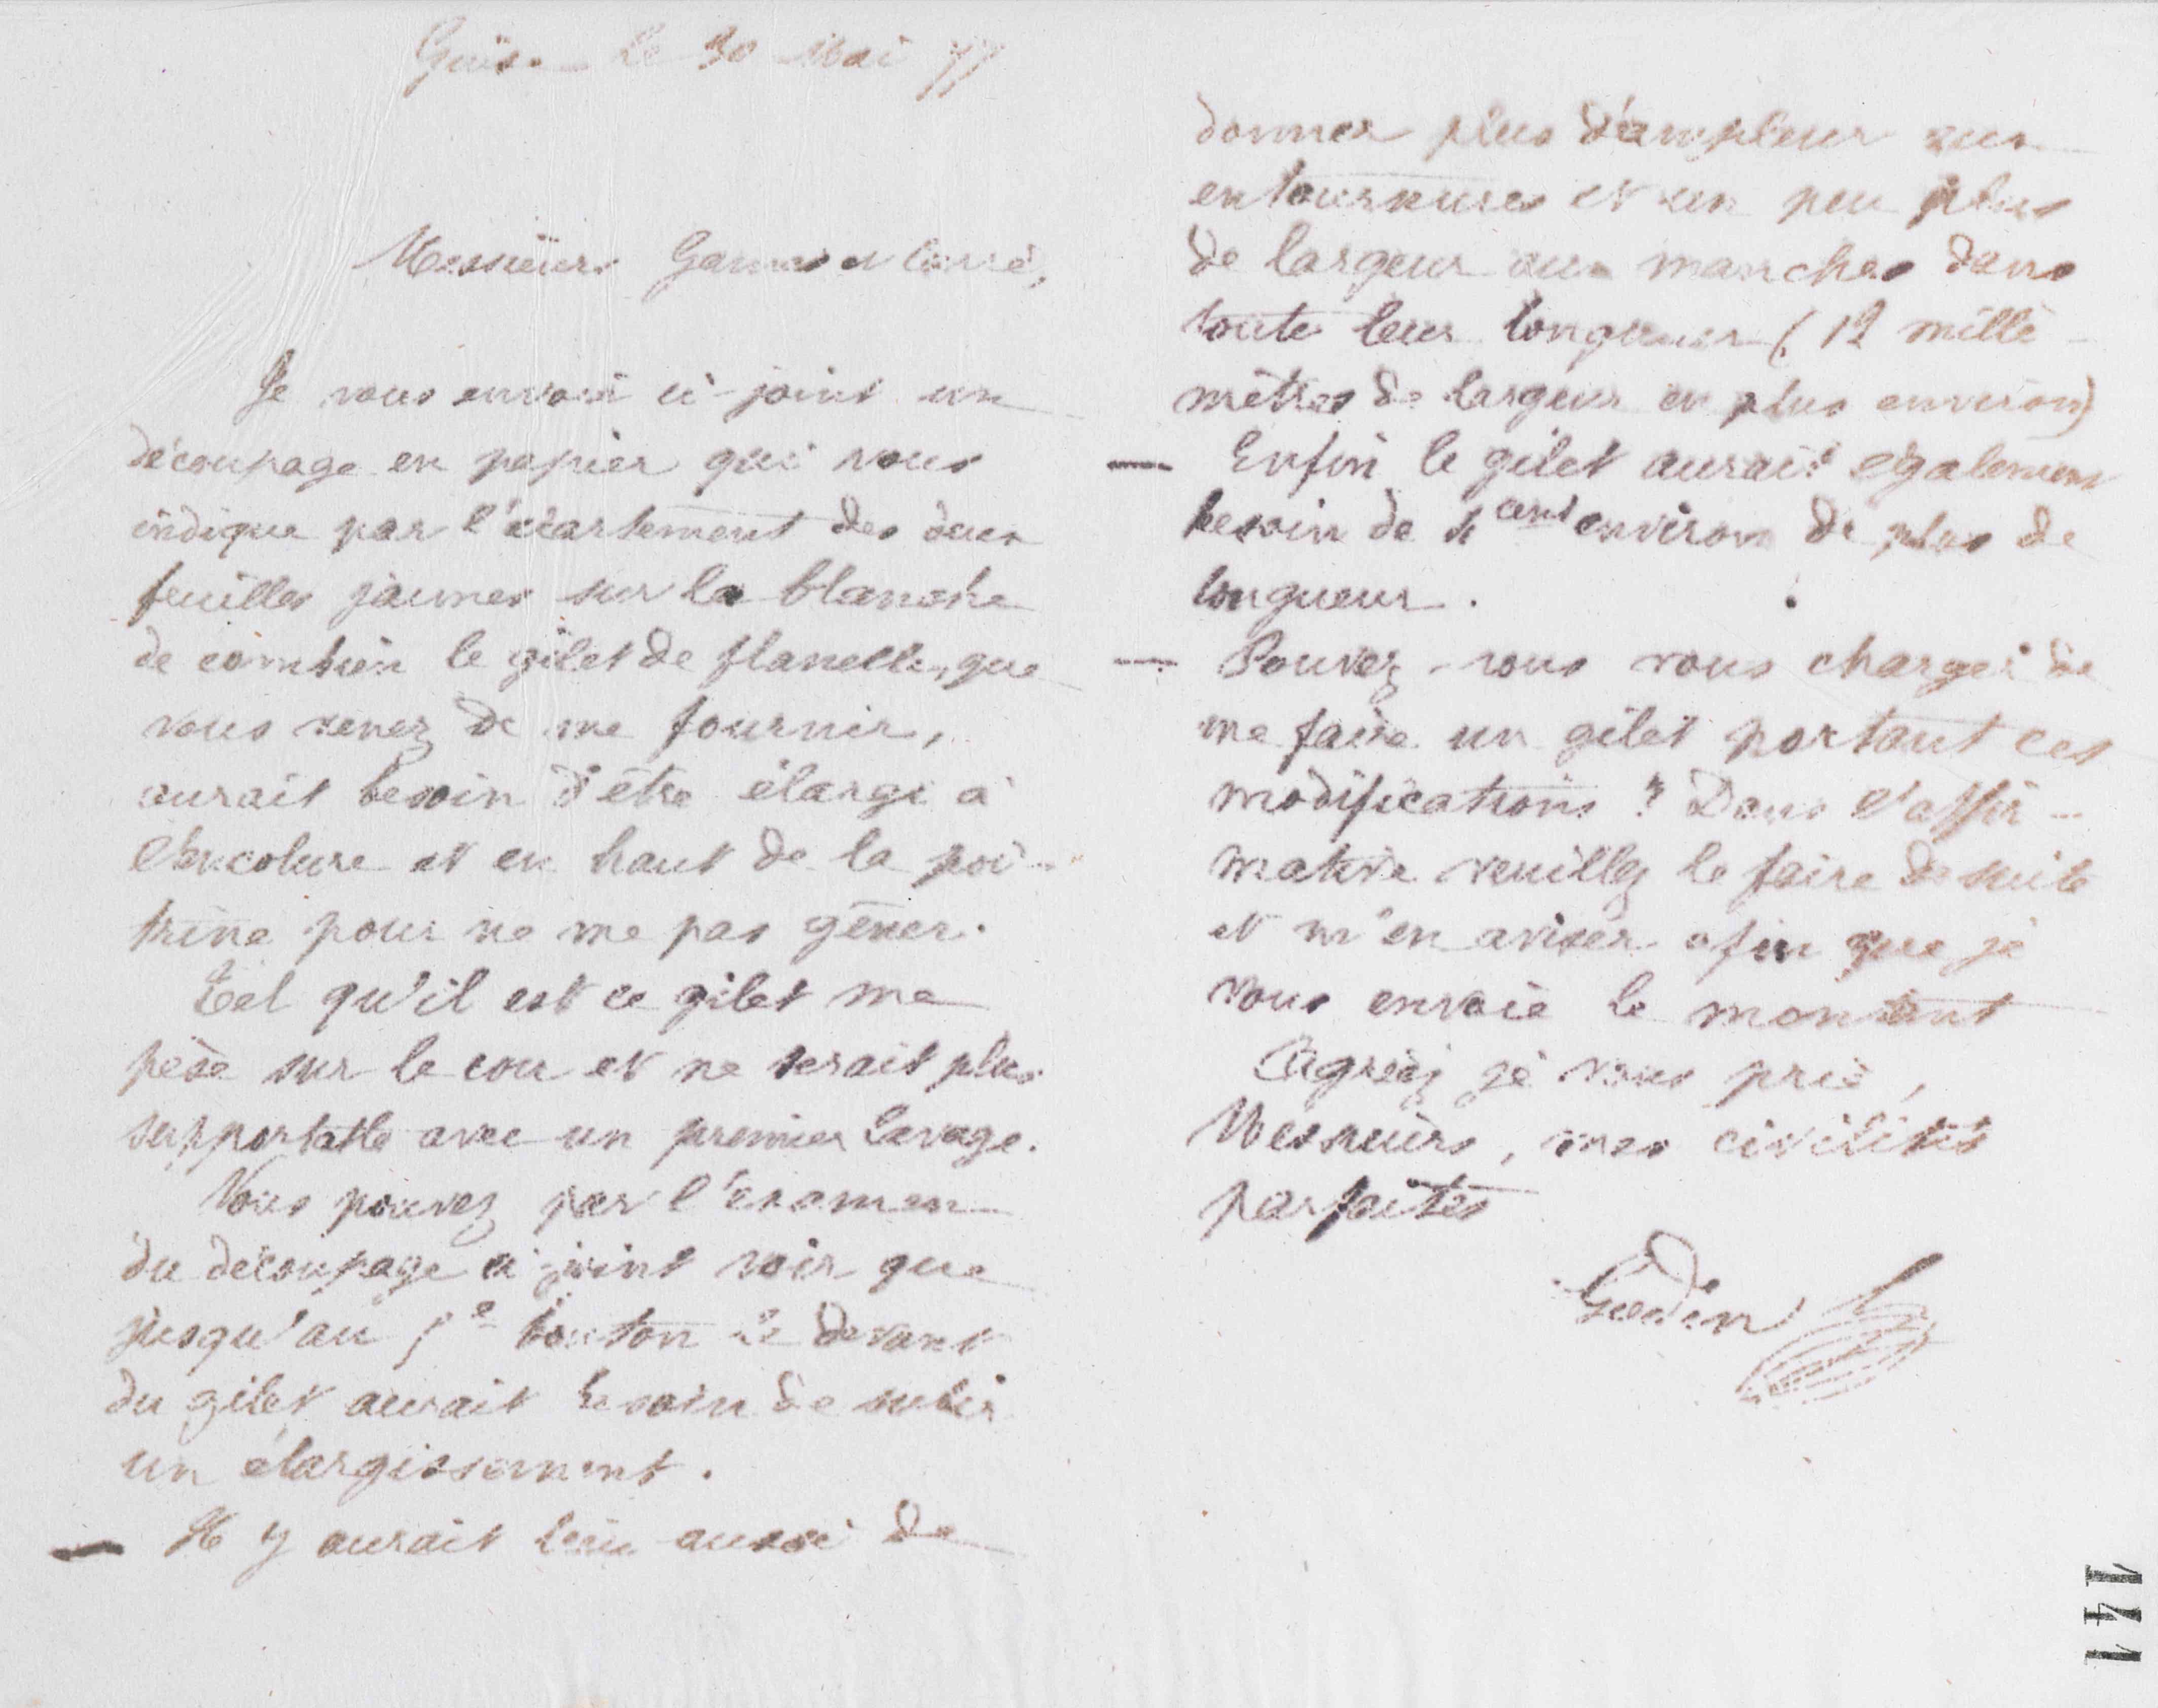 Guise le 30 Mai 77
Messieurs
Je vous envoie ci-joint un
découpage en papier qui vous
indique par l'écartement des deux
feuilles jaunes sur la blanche
de combien le gilet de flanelle, que
vous venez de me fournir,
aurait besoin d'être élargi à
l'encolure et en haut de la poi-
trine pour ne me pas gêner.
Tel qu'il est ce gilet me
pèse sur le cou et ne serait plus
supportable avec un premier lavage.
Vous pouvez par l'examen
du découpage ci-joint voir que
jusqu'au 5e bouton le devant
du gilet aurait besoin de subir
un élargissement.
— Il y aurait lieu aussi de
donner plus d'ampleur aux
entournures et un peu plus
de largeur aux manches dans
toute leur longueur (12 milli-
mètres de largeur en plus environ)
— Enfin le gilet aurait également
besoin de 4 cent environ de plus de
longueur.
— Pouvez-vous vous charger de
me faire un gilet portant ces
modifications ? Dans l'affir-
mative veuillez le faire de suite
et m'en aviser afin que je
vous envoie le montant
Agréez je vous prie,
Messieurs, mes civilités
parfaites
Godin
141